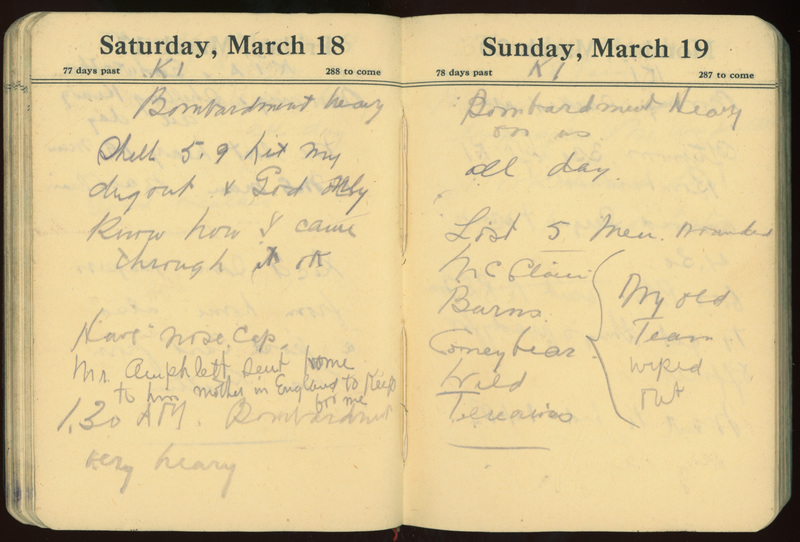 Saturday, March 18
77 days past K1 288 to come
Bombardment heavy
Shell 5.9 hit my
dugout & God only
Know how I came
through it ok
Have nose cap.
Mr. Amphlett sent home
to him mother in England to keep
for me
1.30 AM. Bombardment
very heavy
Sunday, March 19
78 days past K1 287 to come
Bombardment Heavy
on us
all day.
Lost 5 Men. wounded
McClain
Barns.
Coneybear.
Wild
My old
Team
wiped
out